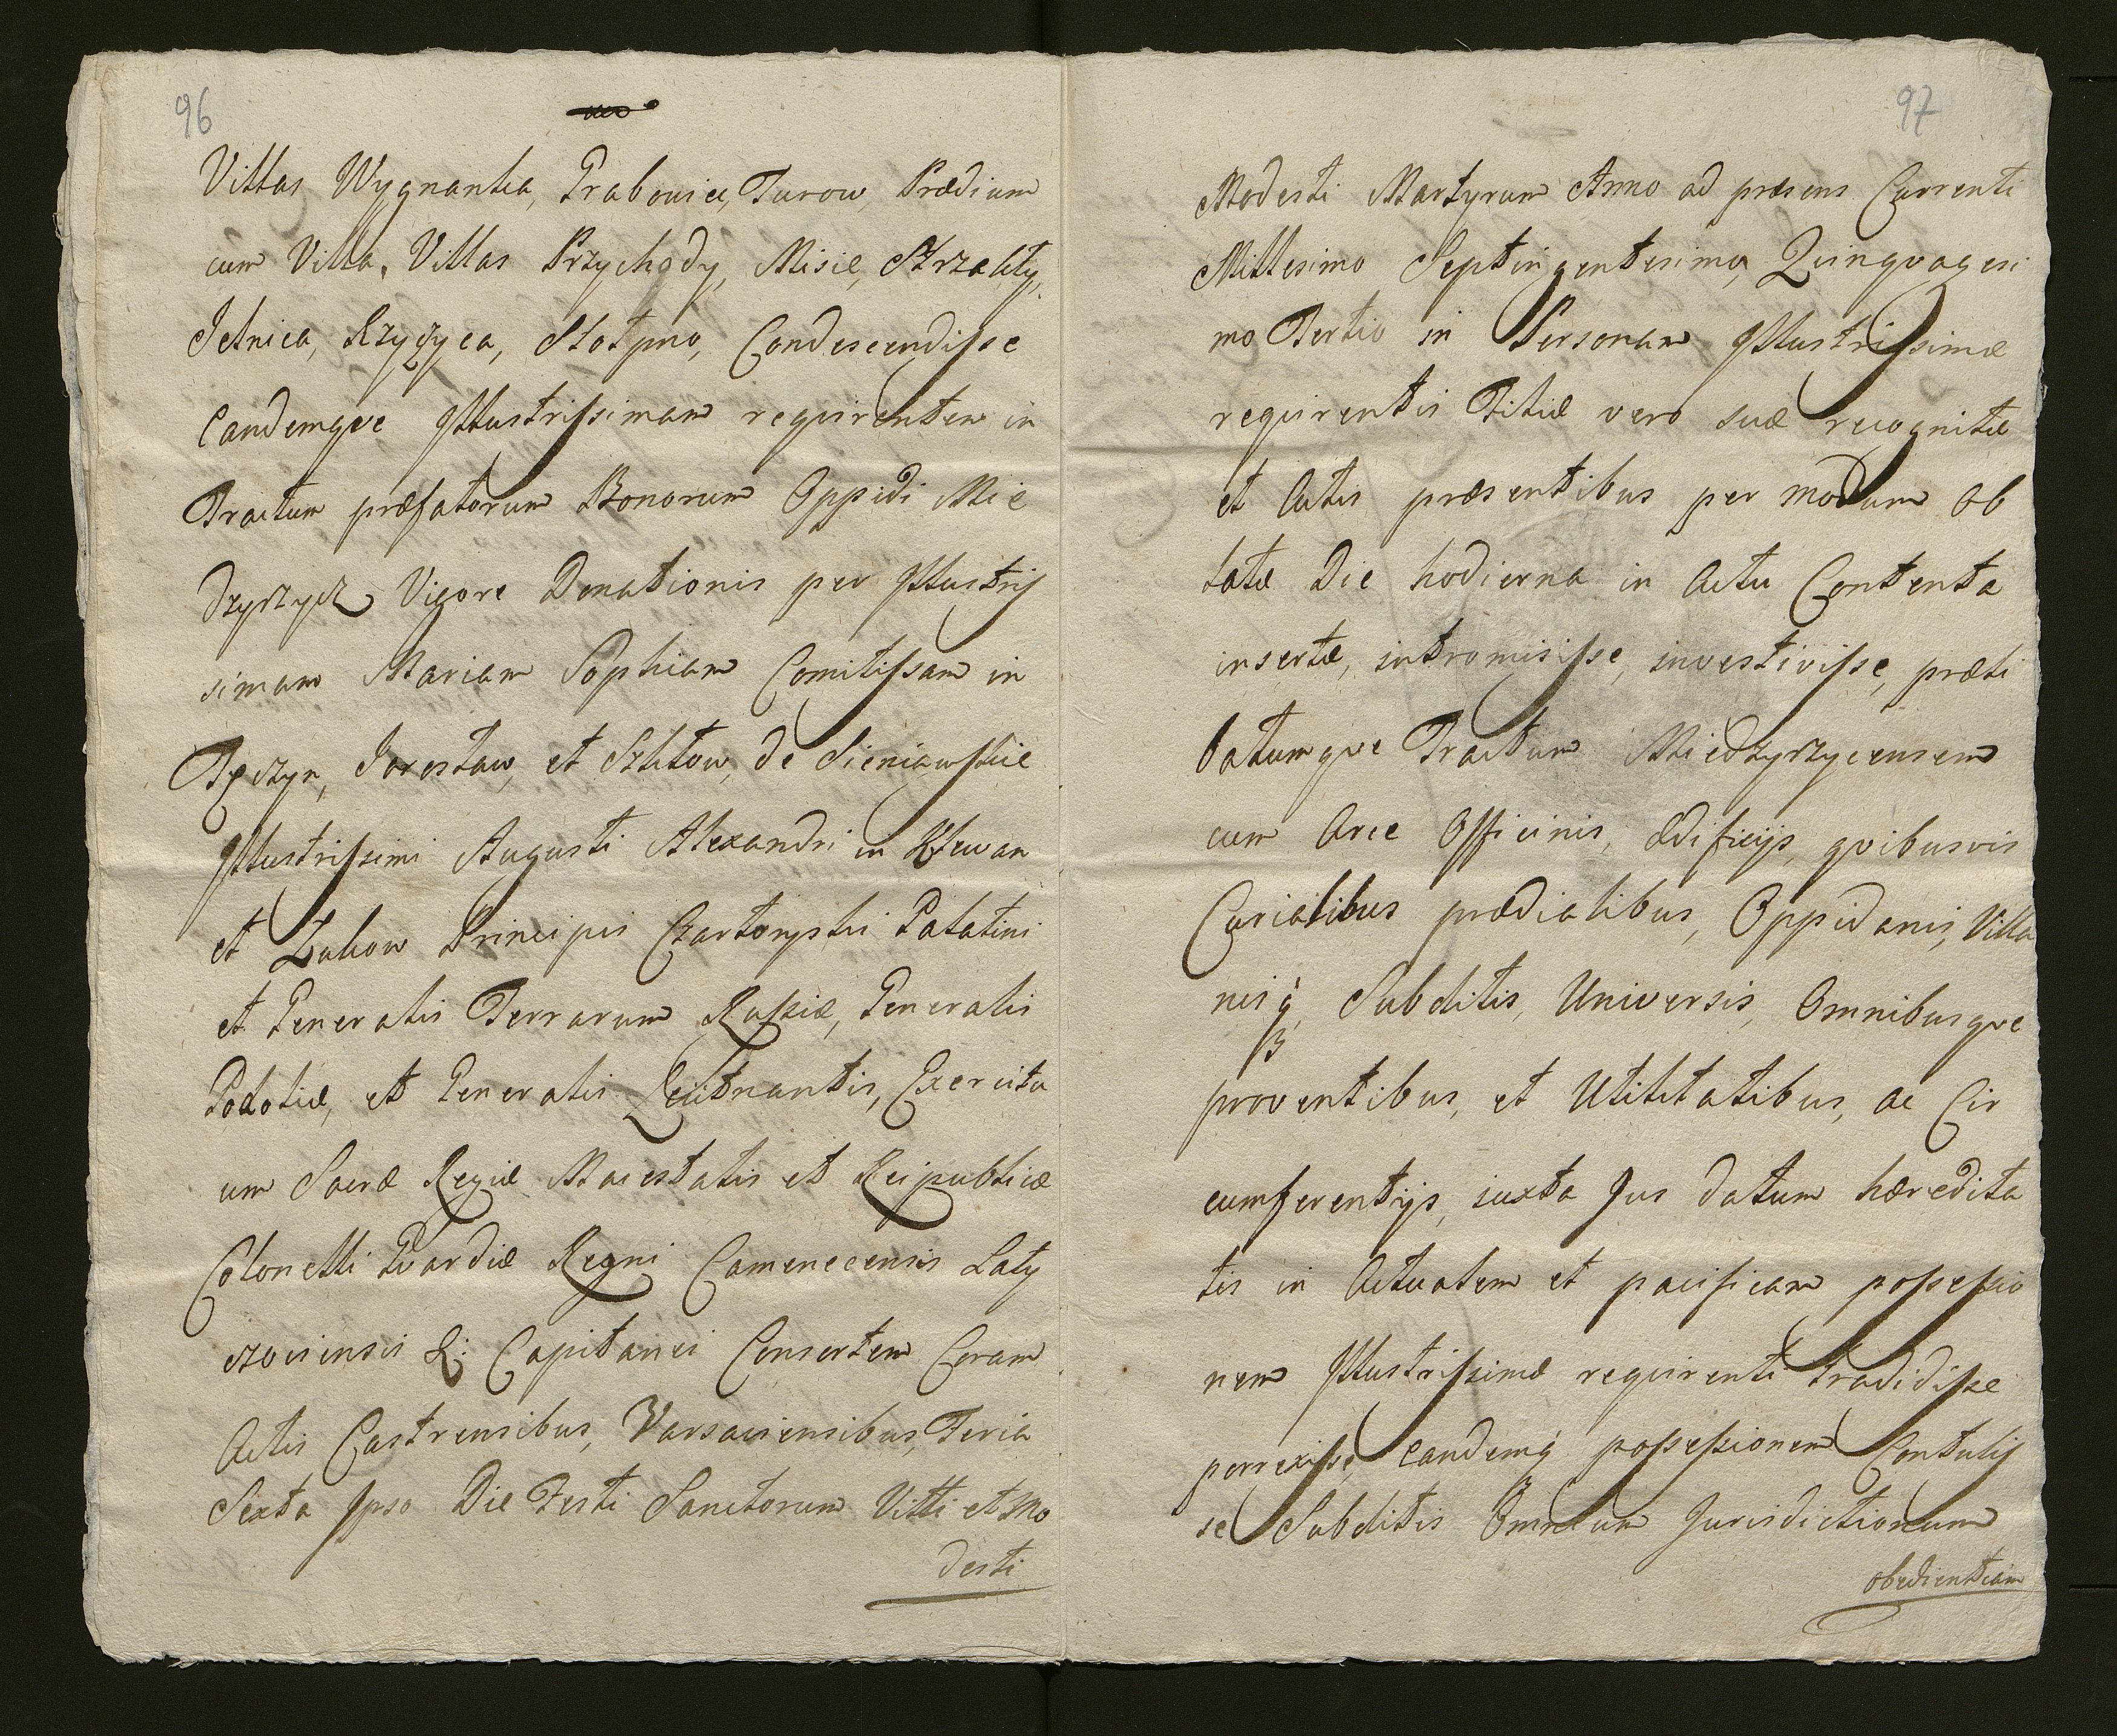 96
Villas Wygnanka, Grabowiec, Turow, Prædium
cum Villa, Villas Przychody, Misie, Strzakły,
Jelnica, Rzyczyca, Stołpno, Condescendisse
Eandemqve Jllustrissimam reqvirentem in
Tractum præfatorum Bonorum Oppidi Mie
dzyrzycz Vigore Donationis per Jllustris
simam Mariam Sophiam Comitissam in
Tęczyn, Jarosław, et Szkłow, de Sieniawskie
Jllustrissimi Augusti Alexandri in Klewan
et Zukow Principis Czartoryski Palatini
et Generalis Terrarum Russiæ, Generalis
Podoliæ, et Generalis Leutnantis, Exercitu
um Sacræ Regiæ Maiestatis et Reipublicæ
Colonelli Gvardiæ Regni Camenecensis Laty
czoviensis &: Capitanei Consortem Coram
Actis Castrensibus, Varsaviensibus, Feria
Sexta Jpso Die Festi Sanctorum Vitti et Mo
desti
97
Modesti Martyrum Anno ad præsens Currenti
Millesimo Septingentesimo, Qvinqvagesi
mo Tertio in Personam Jllustrissimæ
reqvirentis Filiæ vero suæ recognitæ
et Actis præsentibus per modum Ob
latæ Die hodierna in Actu Contenta
insertæ, intromisisse, investivisse, præli
batumqve Tractum Miedzyrzycensem
cum Arce Officinis, ædificijs, qvibusvis
Curialibus prædialibus, Oppidanis, Villa
nisq́, Subditis, Universis, Omnibusqve
proventibus, et Utilitatibus, ac Cir
cumferentijs, iuxta Jus datum hæredita
tis in Actualem et pacificam possessio
nem Jllustrissimæ reqvirenti tradidisse
porrexisse, eandemq́ possessionem Contulis
se Subditis Omnium Jurisdictionum
obedientiam